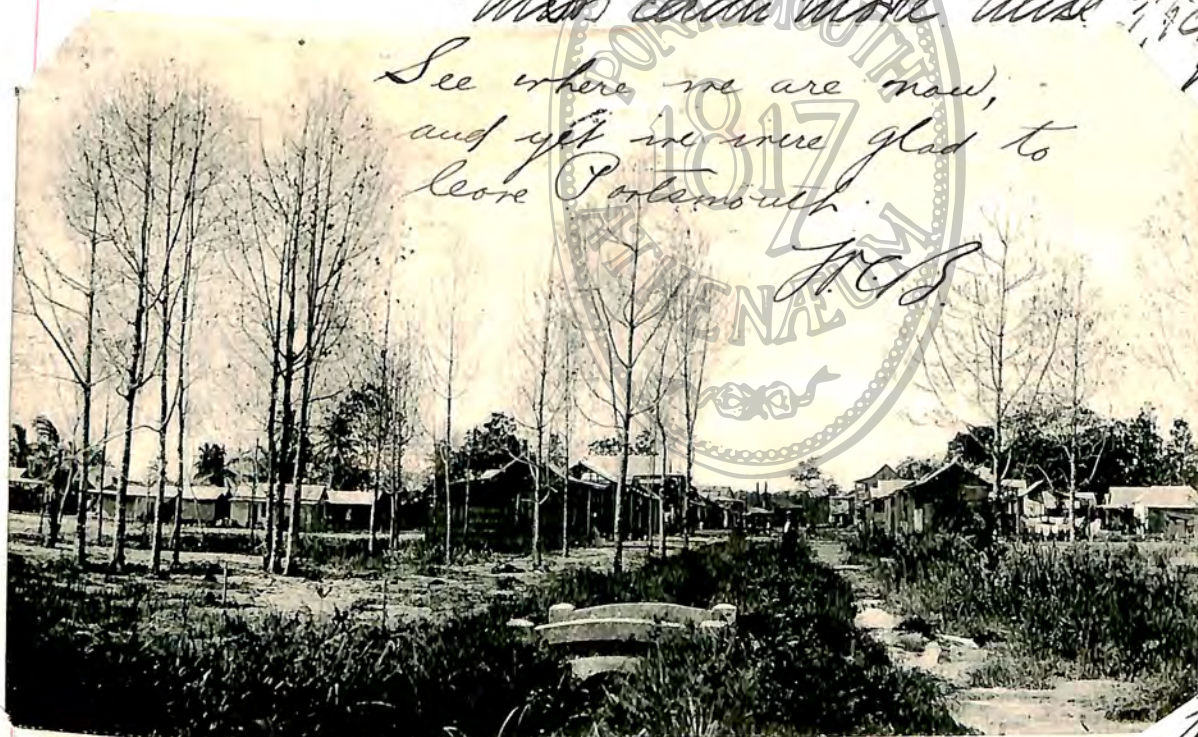 more
See where we are now,
and yet we were glad to
leave Portsmouth.
PORTSMOUTH
1817
ATHENÆUM